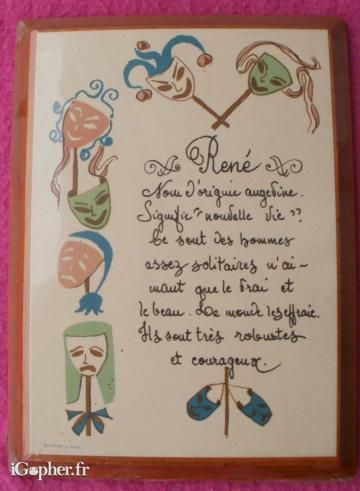 René
Nom d'origine angevine.
Signifie "nouvelle vie"
Ce sont des hommes
assez solitaires n'ai-
mant que le vrai et
le beau. Le monde les effraie.
Ils sont très robustes
et courageux.
iGopher.fr